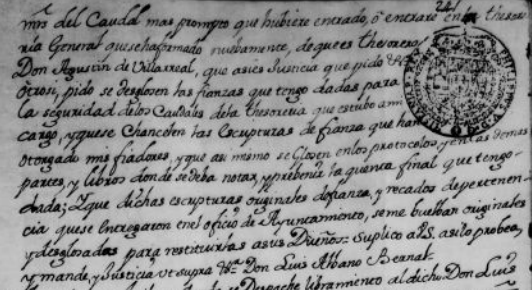 mrs. del Caudal mas prompto que hubiere entrado, ó entrare en la thesou
ria General que se ha formado nuebamente, de que es thesorero
Don Agustin de Villarreal, que asi es Justicia que pido &a.
Otrosi, pido se desglosen las fianzas que tengo dadas para
la seguridad de los Caudales de la thesoreria que estubo a mi
cargo, y que se Chancelen las Escrupturas de fianza que han
otorgado mis fiadores, y que asi mismo se Glosen en los protocolos, y en las demas
partes, y libros donde se deba notar, y prebenir la quenta final que tengo
dada; Y que dichas escrupturas originales de fianza, y recados de pertenen
cia que se entregaron en el oficio de Ayuntamiento, se me buelban originales
y desglosadas para restituirlas a sus Dueños = suplico a VS. asi lo probea,
y mande, y Justicia ut supra &a. Don Luis Albano Bernal =
se Despache libramiento al dicho Don Luis